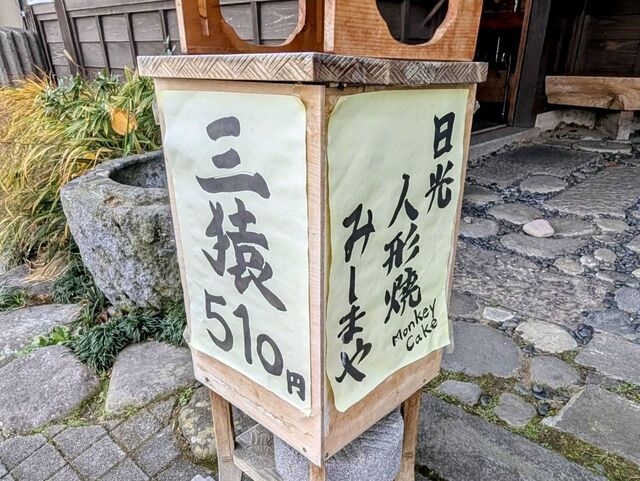 三猿
510円
日光
人形焼
Monkey
Cake
みしまや